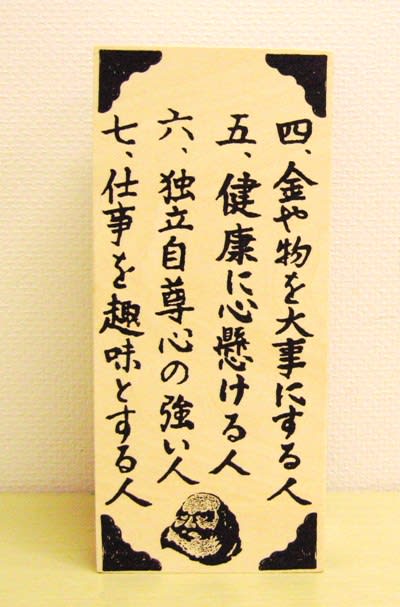 四、金や物を大事にする人
五、健康に心懸ける人
六、独立自尊心の強い人
七、仕事を趣味とする人